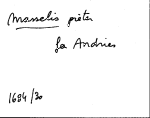 Masselis pieter
fa Andries
1684/30